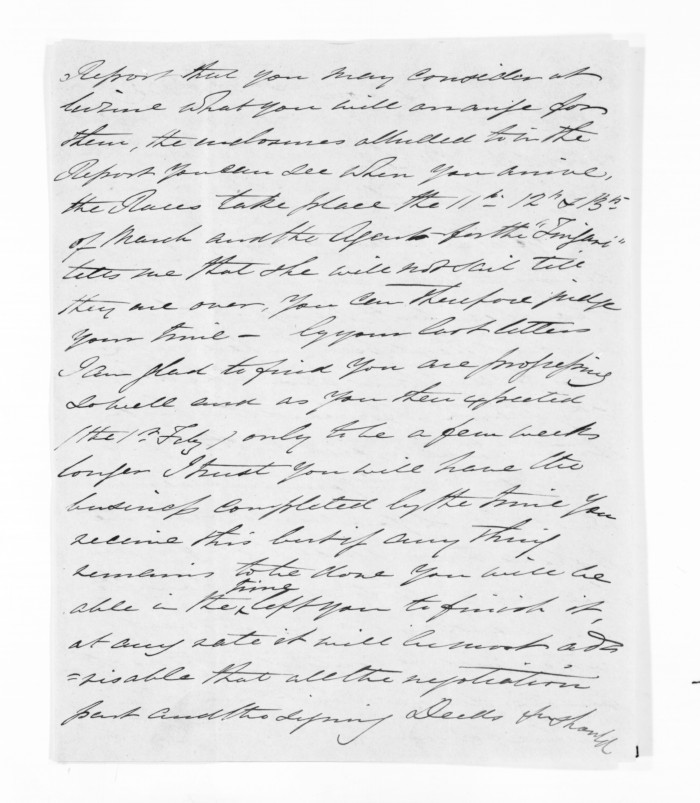 Report that you may consider at
leizure what you will arrange for
them, the enclosures alluded to in the
Report you can see when you arrive,
the Races take place the 11th 12th & 13th
of March and the Agent for the
tells me that she will not sail till
they are over, you can therefore judge
your time — by your last letters
I am glad to find you are progressing
so well and as you then expected
(the 1st Feby) only to be a few weeks
longer I trust you will have the
business completed by the time you
receive this but if any thing
remains to be done you will be
able in the time left you to finish it,
at any rate it will be most ad
=visable that all the negotiation
part and the signing Deeds &c should